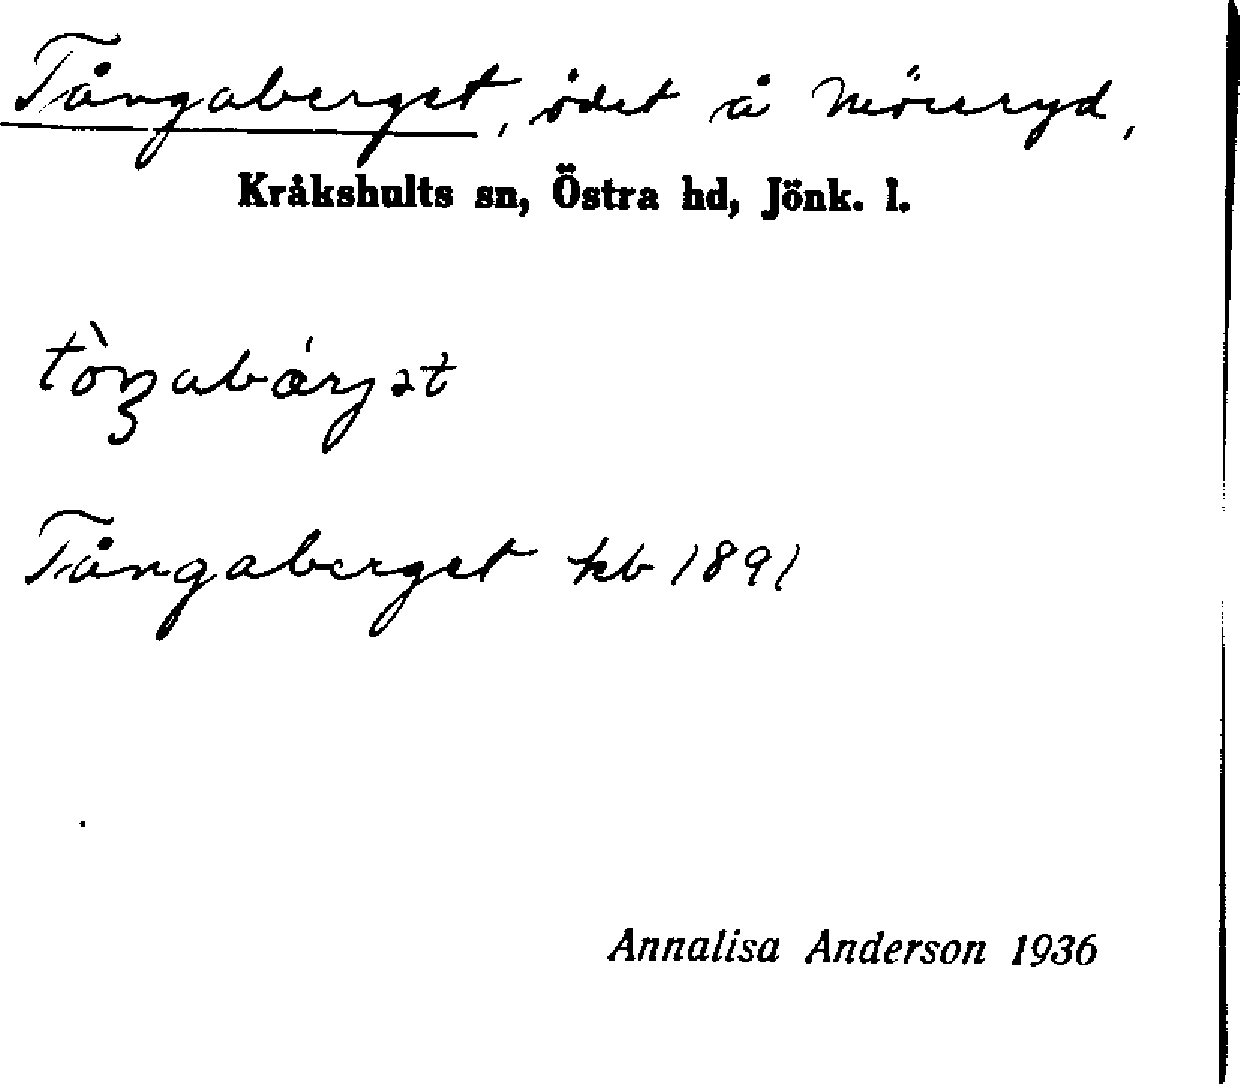 Tångaberget, ödet å Mörsryd,
Kråkshults sn, Östra hd, Jönk. l.
Tångaberget kb 1891
Annalisa Anderson 1936